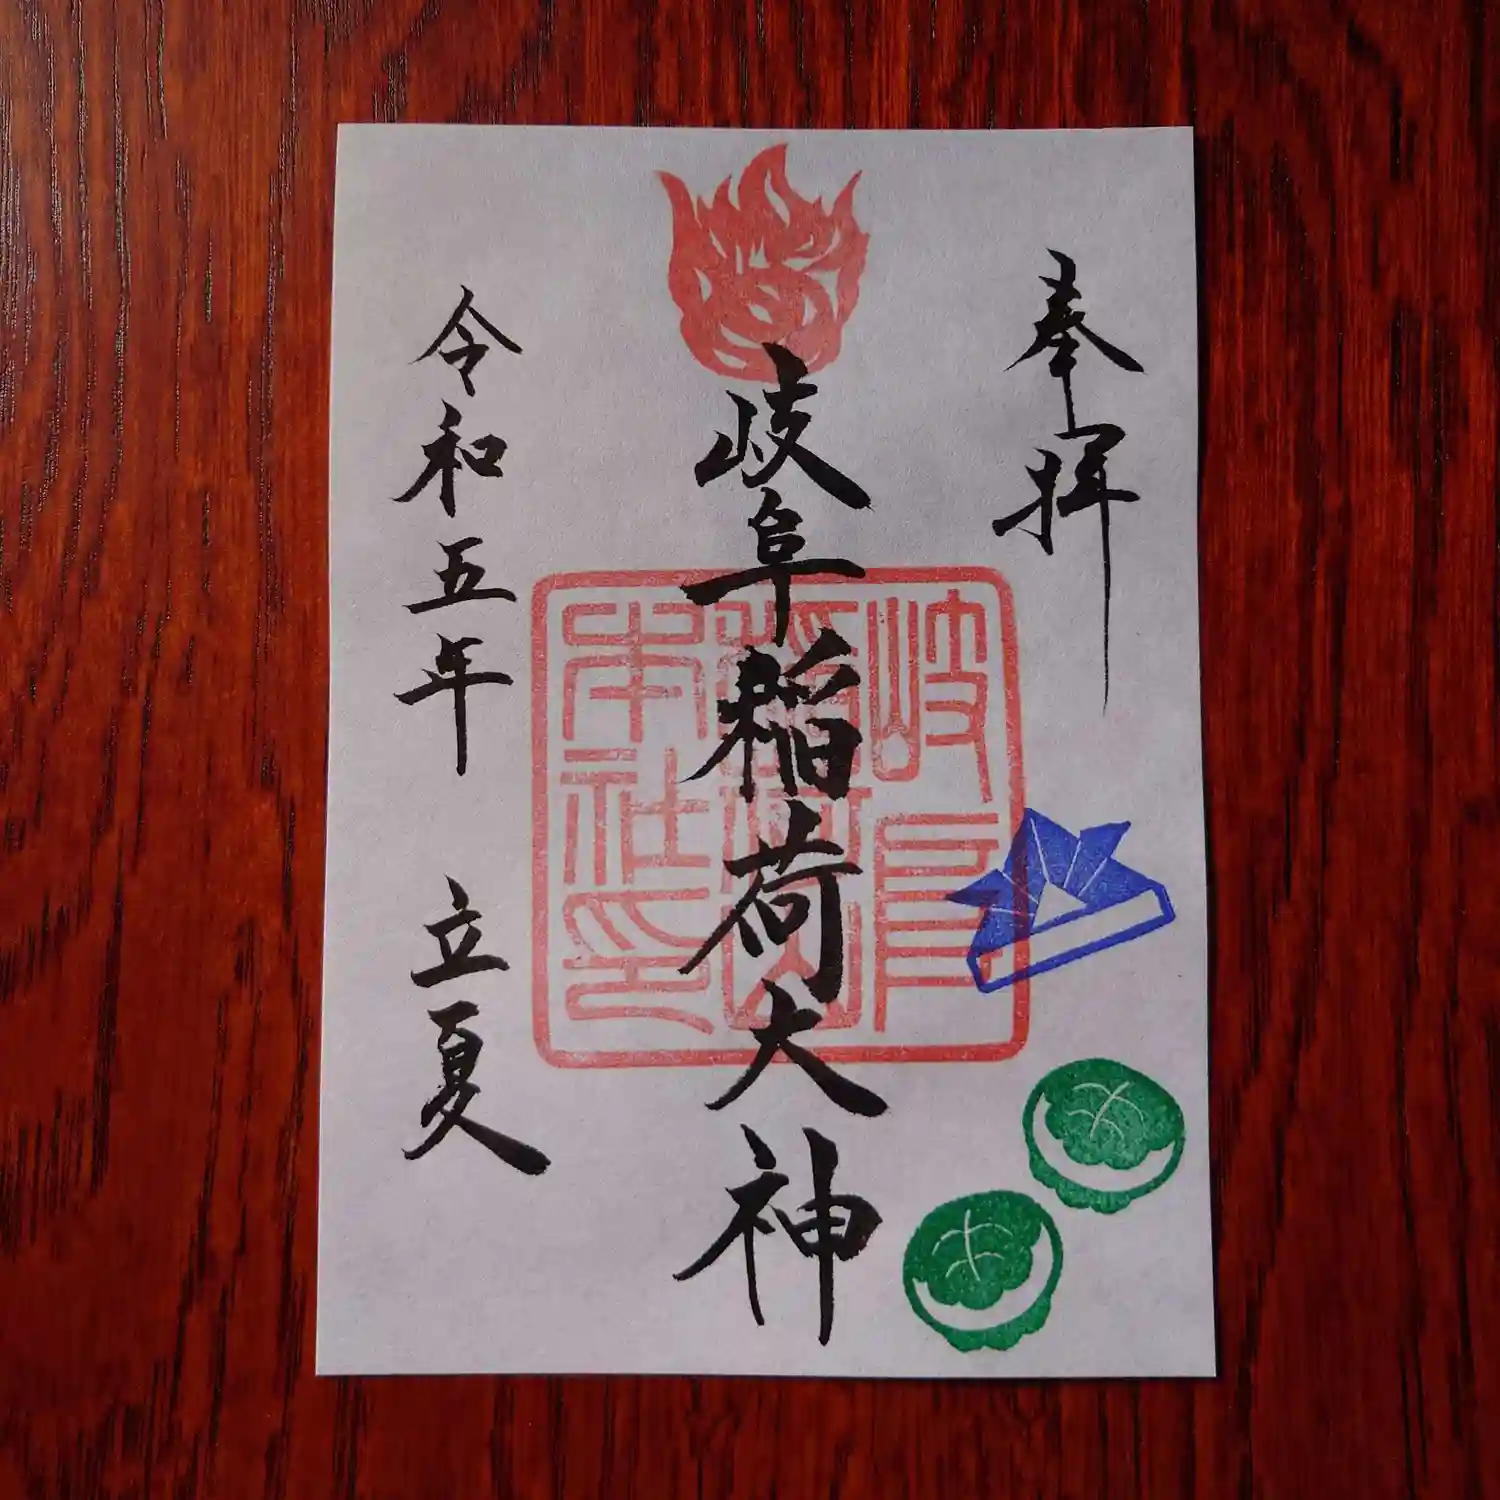 奉拝
岐阜稲荷大神
岐阜
稲荷山
本社印
令和五年 立夏